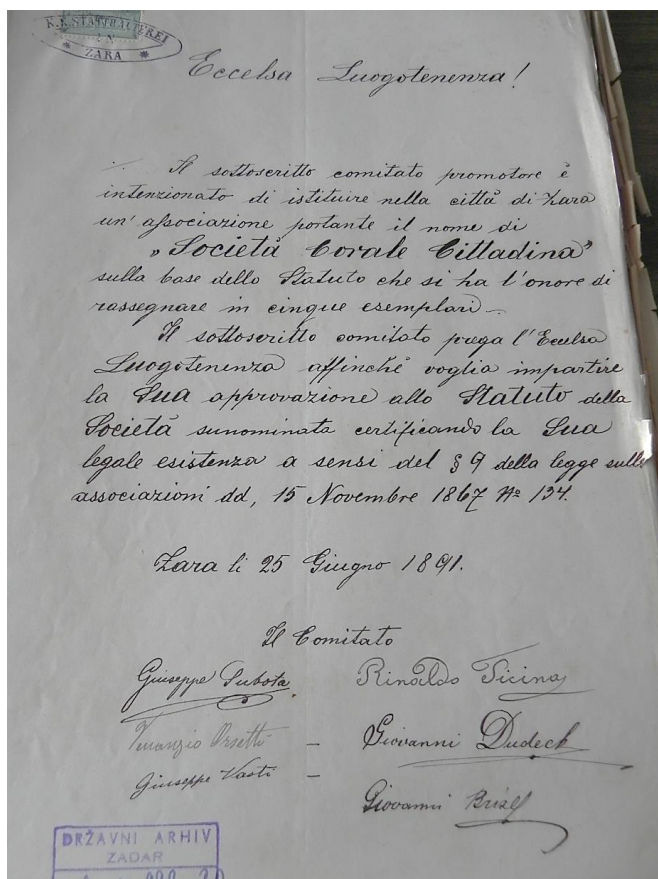 K.K. STATTHALTEREI
IN
* ZARA *
Eccelsa Luogotenenza!
Il sottoscritto comitato promotore è
intenzionato di istituire nella città di Zara
un' associazione portante il nome di
„Società Corale Cittadina"
sulla base dello Statuto che si ha l'onore di
rassegnare in cinque esemplari_
Il sottoscritto comitato prega l'Eccelsa
Luogotenenza affinchè voglia impartire
la Sua approvazione allo Statuto della
Società sunominata certificando la Sua
legale esistenza a sensi del § 9 della legge sulle
associazioni dd, 15 Novembre 1867 No 134.
Zara li 25 Giugno 1891.
Il Comitato
Giuseppe Subota
Rinaldo Ticina
Venanzio Orsetti –
Giovanni Dudeck
Giuseppe Vasti –
Giovanni
DRŽAVNI ARHIV
ZADAR